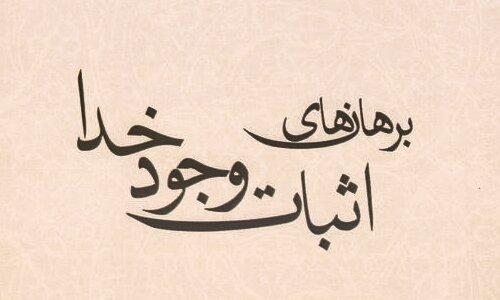 برهان‌های
اثبات وجود خدا